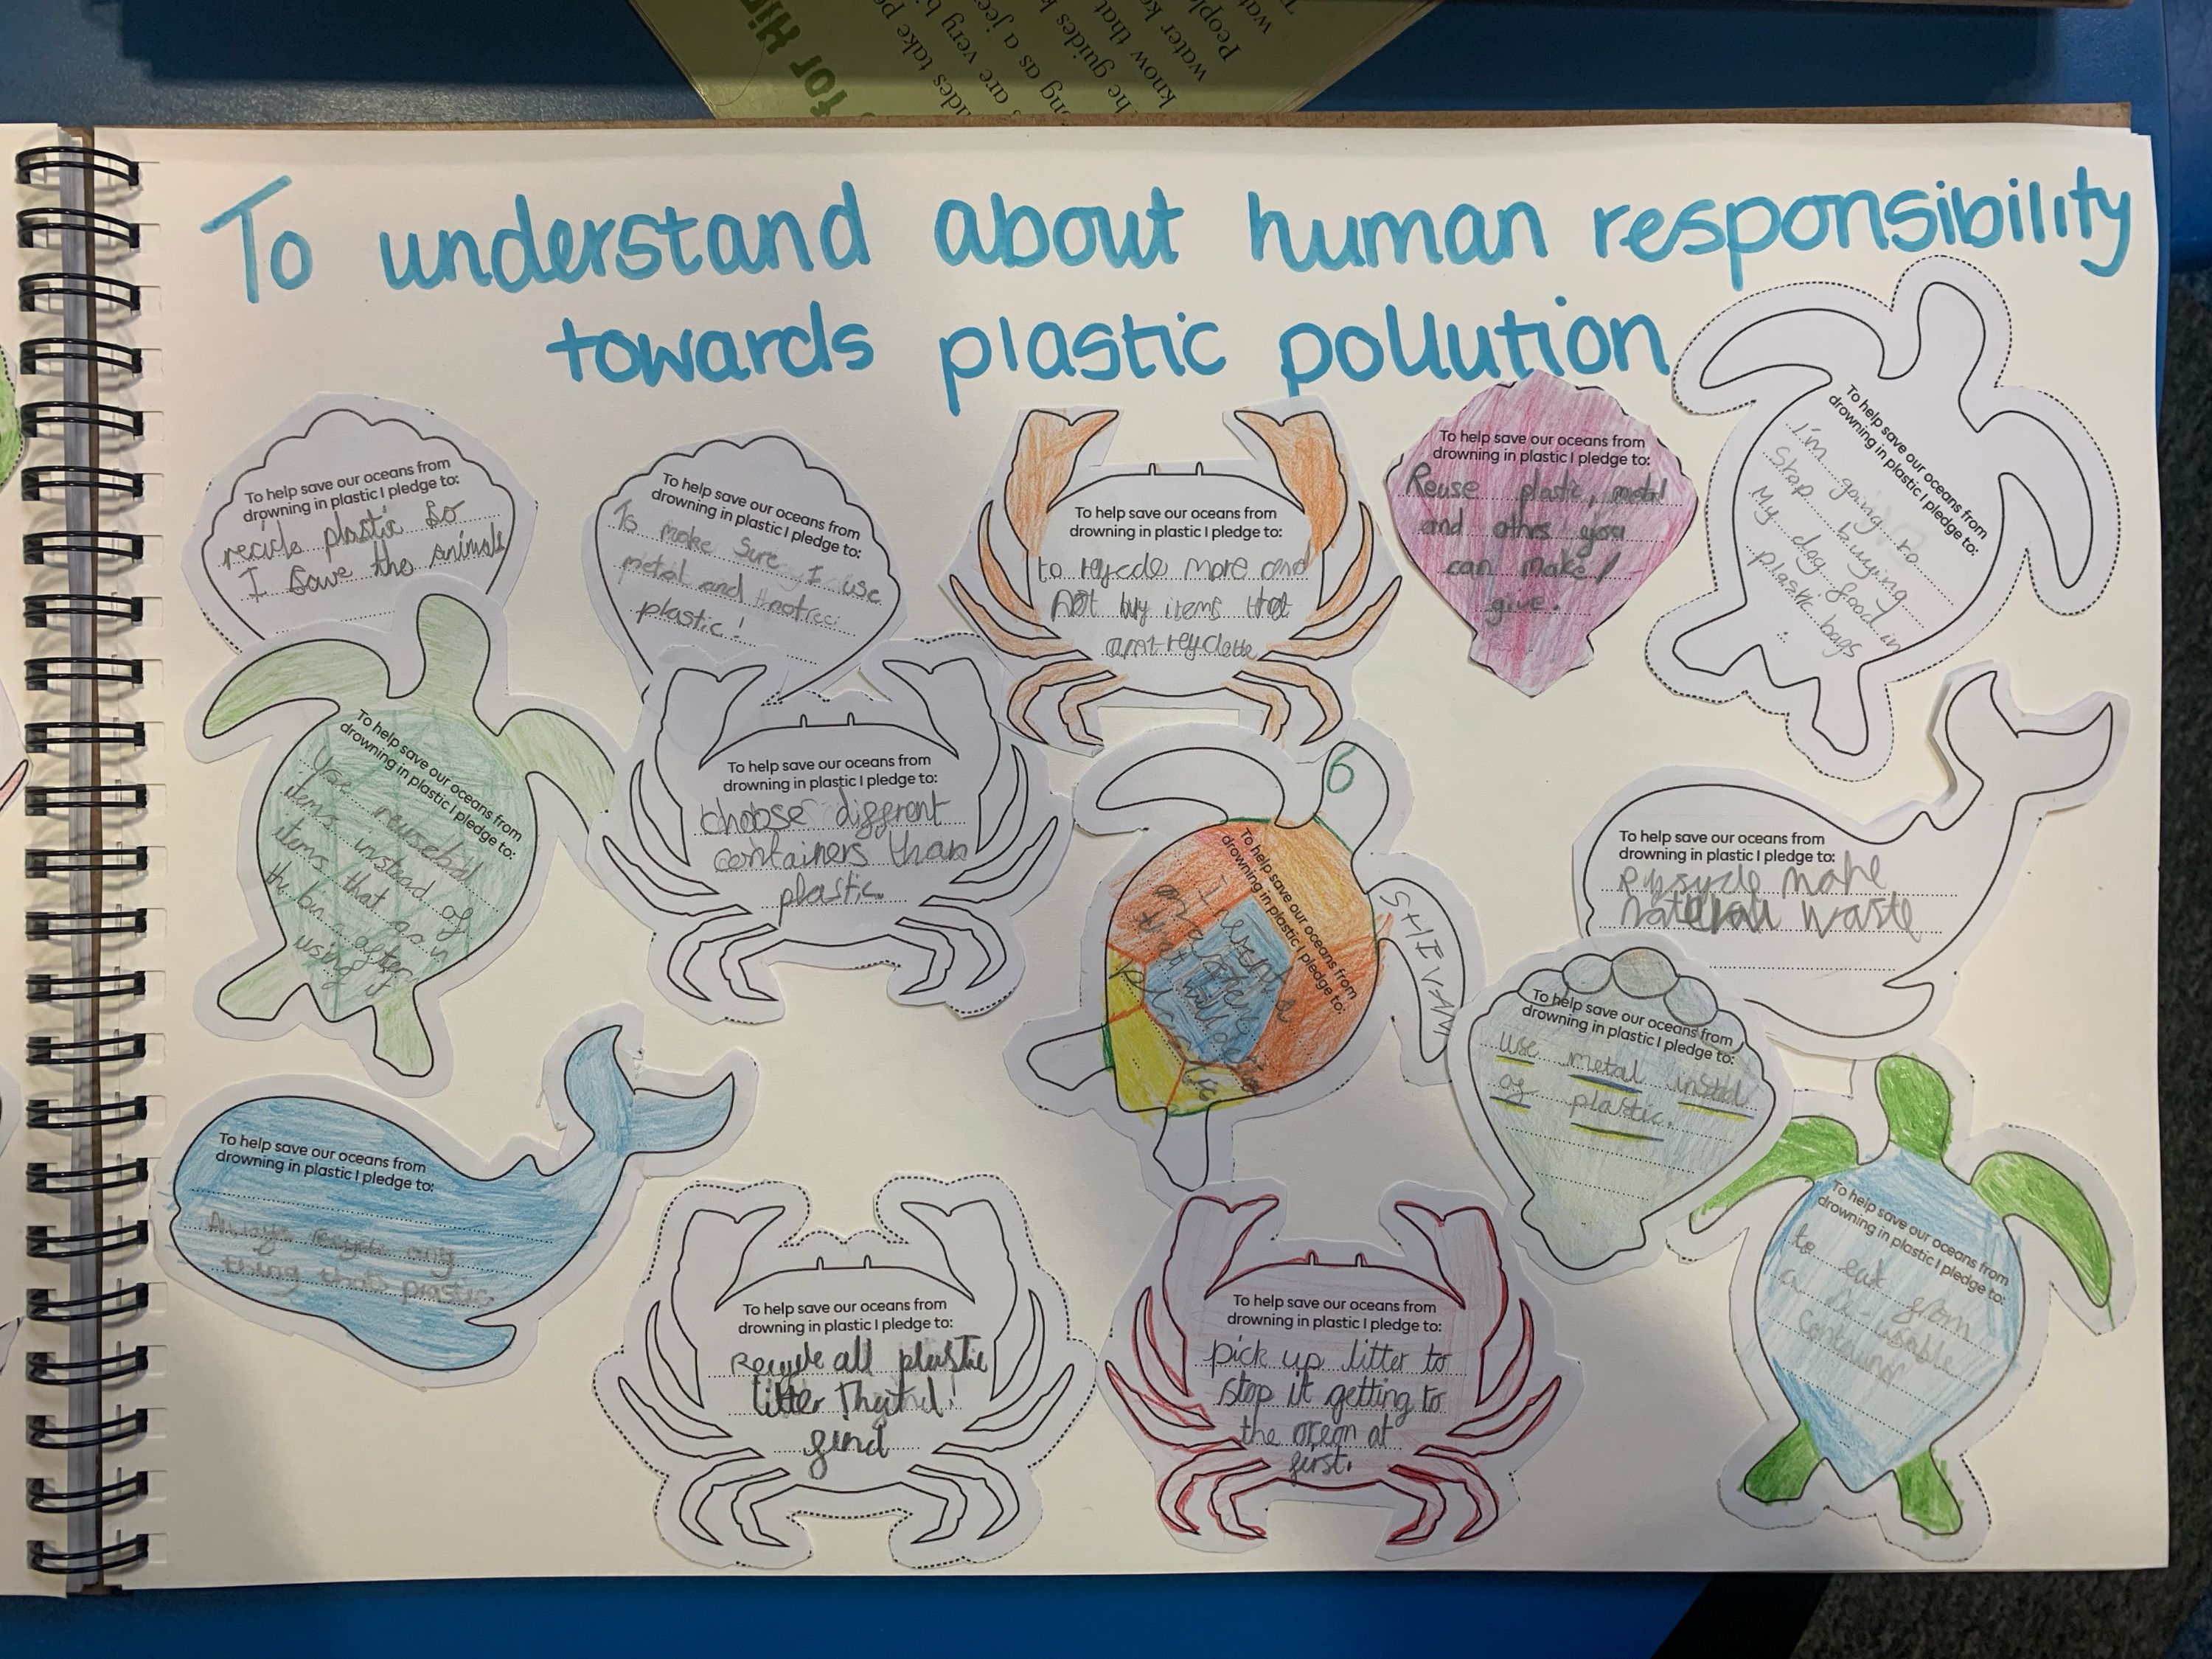 for Hip
To understand about human responsibility
towards plastic pollution
To help save our oceans from
drowning in plastic I pledge to:
recicle plastic so
I save the animals
To help save our oceans from
drowning in plastic I pledge to:
To make sure I use
metal and not
plastic!
To help save our oceans from
drowning in plastic I pledge to:
to reycde more and
not buy items that
arnt
To help save our oceans from
drowning in plastic I pledge to:
Reuse plastic, metal
and othrs you
can make/
give.
To help save our oceans from
drowning in plastic I pledge to:
I'm going to
stop buying
My dog food in
plastic bags
To help save our oceans from
drowning in plastic I pledge to:
Use
items instead of
items that go in
the bin after
using
To help save our oceans from
drowning in plastic I pledge to:
choose different
containers than
plastic.
6
SHIVAM
To help save our oceans from
drowning in plastic I pledge to:
To help save our oceans from
drowning in plastic I pledge to:
waste
To help save our oceans from
drowning in plastic I pledge to:
use metal insted
of plastic.
To help save our oceans from
drowning in plastic I pledge to:
Always recycle any
thing thats plastic
To help save our oceans from
drowning in plastic I pledge to:
Recycle all plastic
litter
find
To help save our oceans from
drowning in plastic I pledge to:
pick up litter to
stop it getting to
the ocean at
first.
To help save our oceans from
drowning in plastic I pledge to:
to eat from
a re-usable